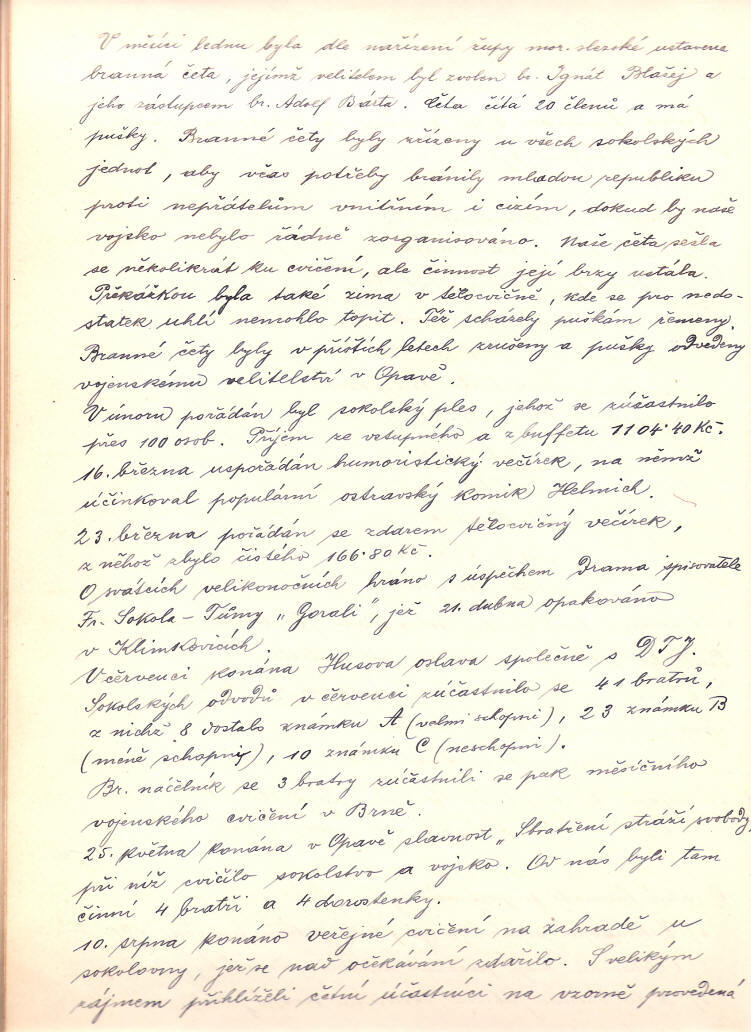 V měsíci lednu byla dle nařízení župy mor. slezské ustavena
branná četa, jejímž velitelem byl zvolen br. Ignát Blažej a
jeho zástupcem br. Adolf Bárta. Četa čítá 20 členů a má
pušky. Branné čety byly zřízeny u všech sokolských
jednot, aby včas potřeby bránily mladou republiku
proti nepřátelům vnitřním i cizím, dokud by naše
vojsko nebylo řádně zorganisováno. Naše četa sešla
se několikrát ku cvičení, ale činnost její brzy ustála.
Překážkou byla také zima v tělocvičně, kde se pro nedo-
statek uhlí nemohlo topit. Též scházely puškám řemeny.
Branné čety byly v příštích letech zrušeny a pušky odvedeny
vojenskému velitelství v Opavě.
V únoru pořádán byl sokolský ples, jehož se zúčastnilo
přes 100 osob. Příjem ze vstupného a z buffetu 1104·40 Kč.
16. března uspořádán humoristický večírek, na němž
účinkoval populární ostravský komik Helmich.
23. března pořádán se zdarem tělocvičný večírek,
z něhož zbylo čistého 166·80 Kč.
O svátcích velikonočních hráno s úspěchem Drama spisovatele
Fr. Sokola-Tůmy „Gorali", jež 21. dubna opakováno
v Klimkovicích.
V červenci konána Husova oslava společně s DTJ.
Sokolských odvodů v červenci zúčastnilo se 41 bratrů,
z nichž 8 dostalo známku A (velmi schopni), 23 známku B
(méně schopni), 10 známku C (neschopni).
Br. náčelník se 3 bratry zúčastnili se pak měsíčního
vojenského cvičení v Brně.
25. května konána v Opavě slavnost „Sbratření stráží svobody,
při níž cvičilo sokolstvo a vojsko. Od nás byli tam
činní 4 bratři a 4 dorostenky.
10. srpna konáno veřejné cvičení na zahradě u
sokolovny, jež se nad očekávání zdařilo. S velikým
zájmem přihlíželi četní účastníci na vzorně provedená